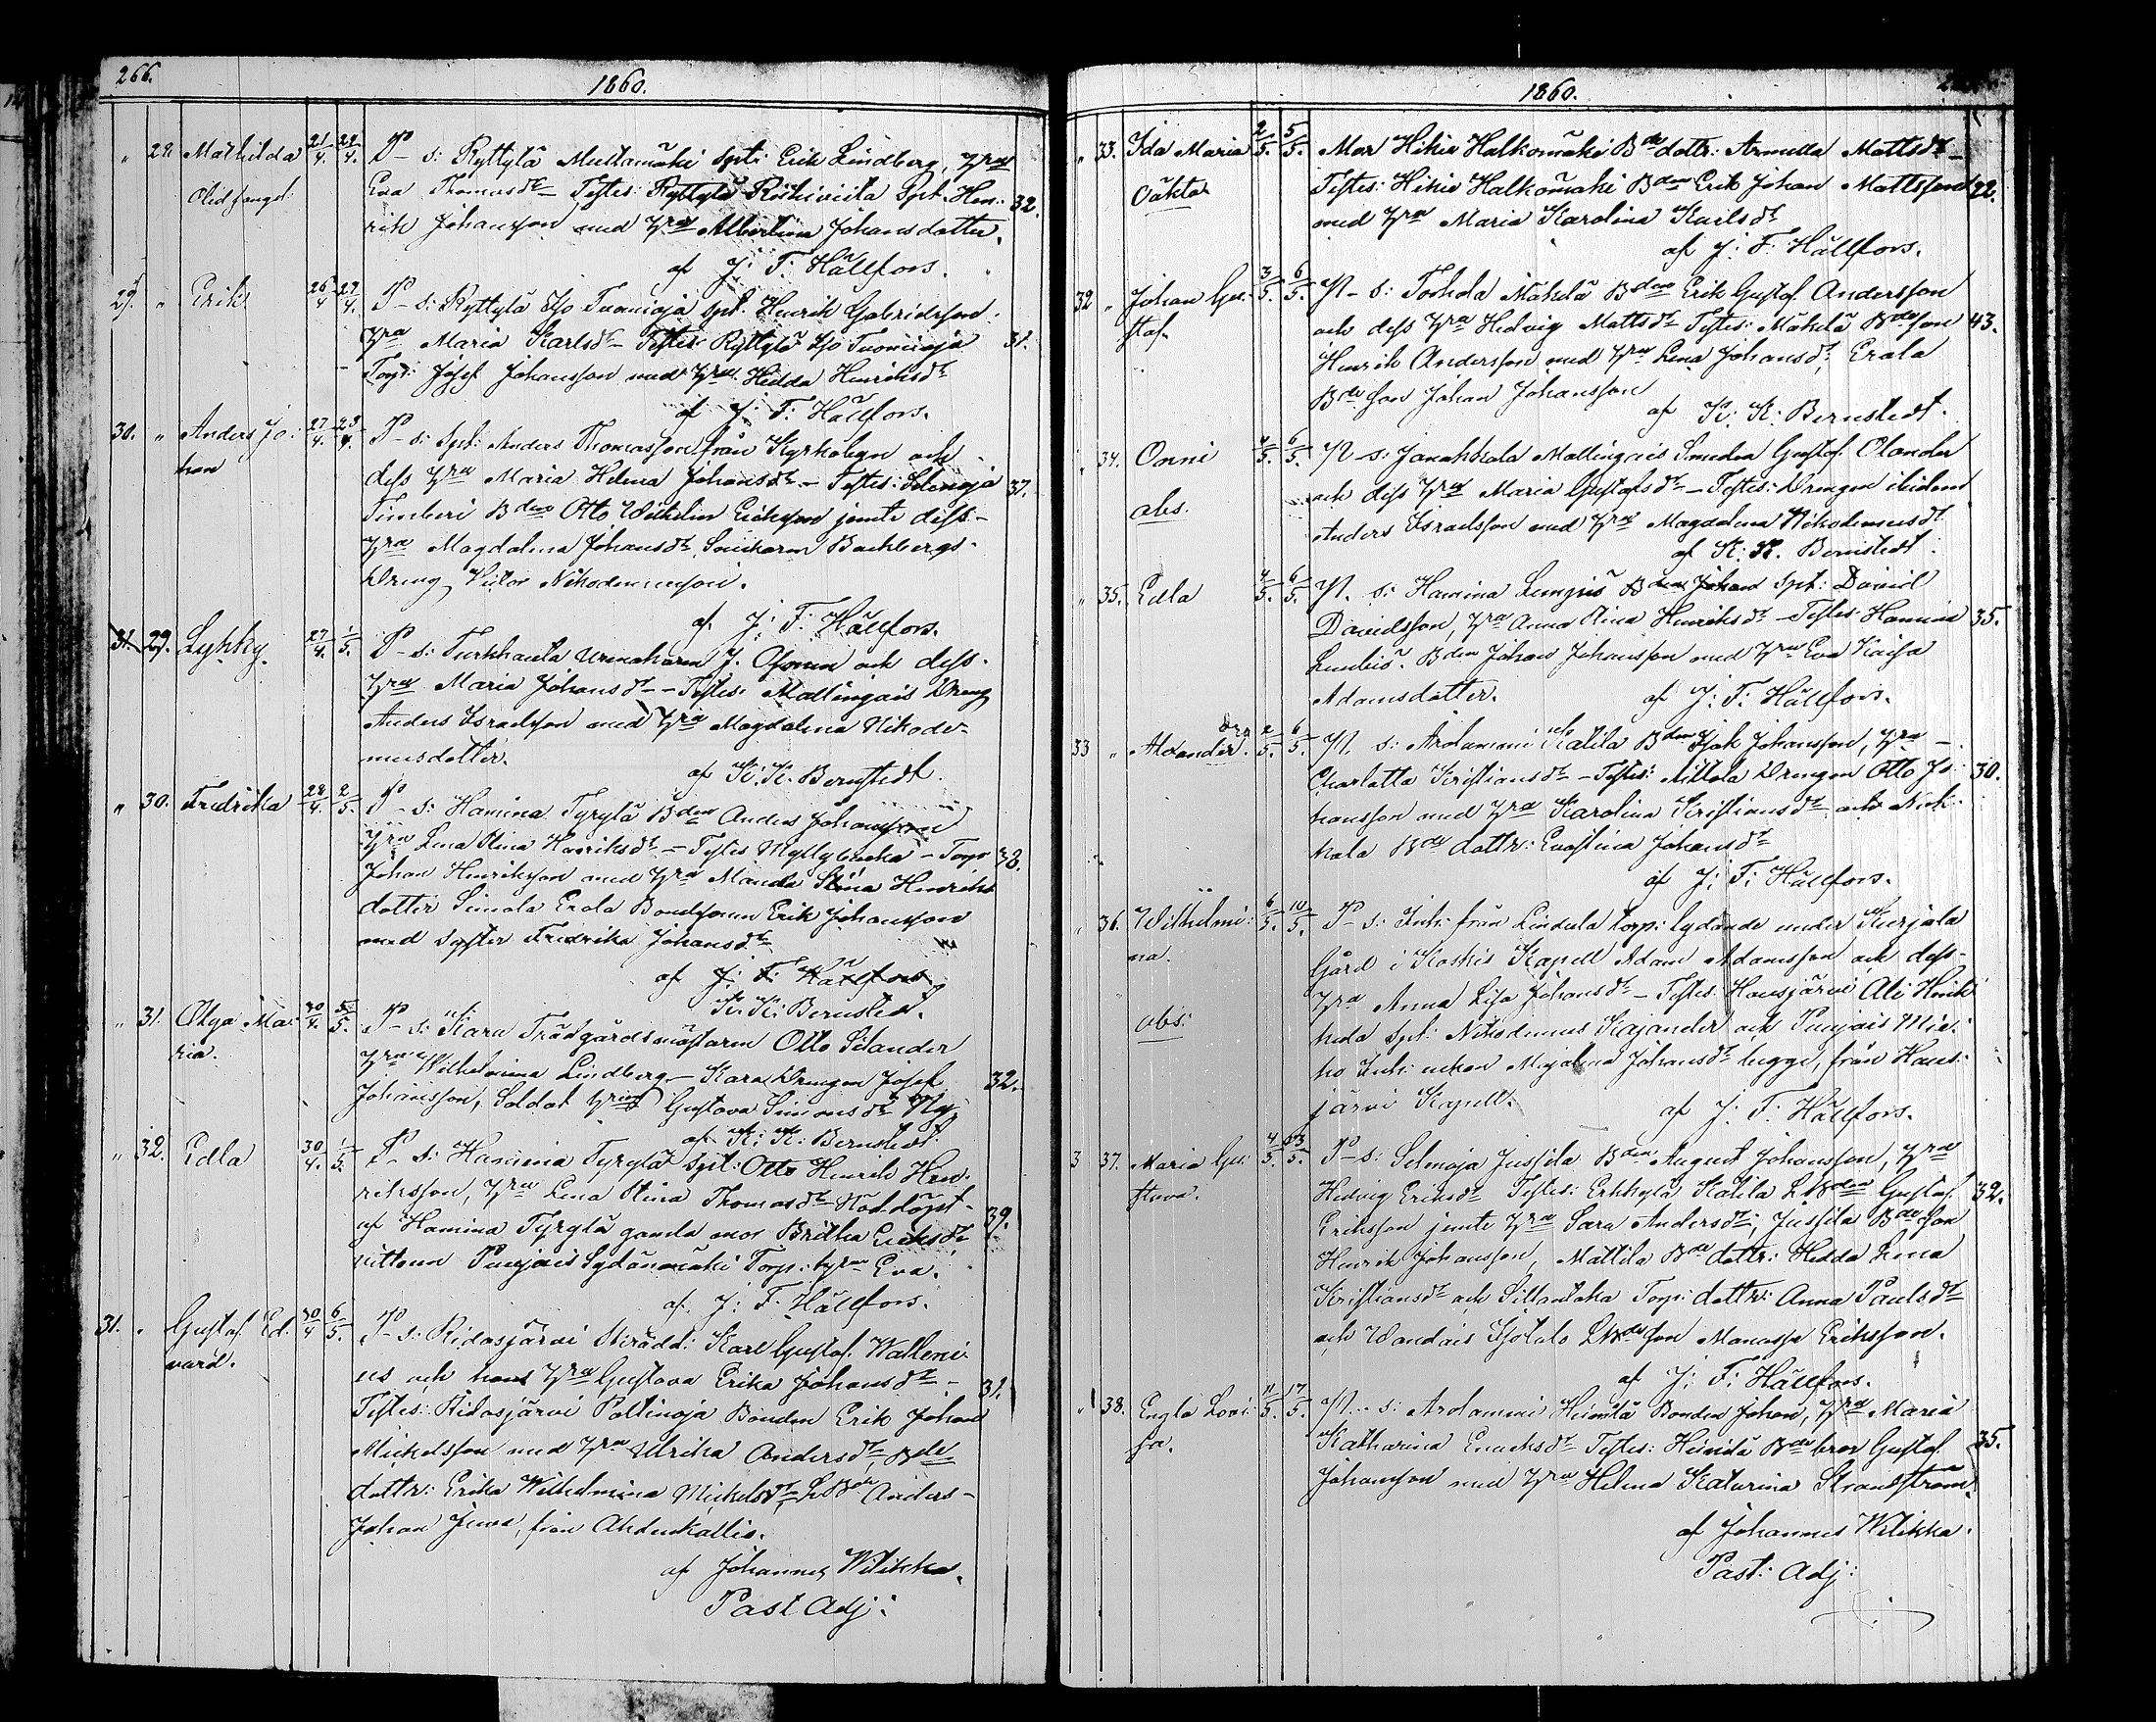 266.
1860.
" 28 Mathilda 21/4. 24/4. P-s: Ryttylä Multamäki Spts: Erik Lindberg, hru
Olid fangd: Eva Thomasdr – Testes: Ryttylä Ristiviita Spt. Hen- 32.
rik Johansson med hru Albertina Johansdotter.
af J: F: Hällfors.
29. " Erik 26/4 29/4. P-s: Ryttylä Iso Tuomioja Spt. Henrik Gabrielsson
hru Maria Karlsdr – Testes Ryttylä Iso Tuomioja 31.
Torp: Josef Johansson med hru Hedda Henriksdr
af J: F: Hällfors.
30. " Anders Jo: 27/4. 28/4. P-s: Spt: Anders Thomasson från Kyrkobyn och
han dess hru Maria Helena Johansdr – Testes: Selenoja 37.
Timberi Bden Otto Wilhelm Eriksson jemte dess
hru Magdalena Johansdr, Snickaren Backbergs
Dreng Victor Nikodemusson.
af J: F: Hällfors.
31. 29. Lykky 27/4. 1/5. P-s: Turkhauta Urmakaren J. Ofonen och dess
hru Maria Johansdr – Testes Mallingais Dreng
Anders Israelsson med hru Magdalena Nikode-
musdotter.
af K: K: Bernstedt.
" 30. Fredrika 28/4. 2/5. P-s: Hamina Tyrylä Bden Anders Johansson
hru Lena Stina Henriksdr – Testes Myllybacka – Torp 38.
Johan Henriksson med hru Manda Stina Henriks
dotter Simola Erola Bondsonen Erik Johansson
med syster Fredrika Johansdr
af J: F: Hällfors
K: K: Bernstedt.
" 31. Olga Ma: 30/4. 5/5. P-s: Kara Trädgårdsmästaren Otto Silander
ria. hru Wilhelmina Lindberg – Kara Drengen Josef 32.
Johansson, Soldat hru Gustava Simonsdr Ny
af K: K: Bernstedt.
" 32. Edla 30/4. 1/5. P-s: Hamina Tyrylä Spt: Otto Henrik Hen-
riksson, hru Lena Stina Thomasdr Nöddöpt 39.
af Hamina Tyrylä gamla mor Britha Eriksdr
vittnen Puujais Sydänmäki Torp: hru Eva.
af J: F: Hällfors.
31. " Gustaf Ed: 30/4 6/5. P-s: Ridasjärvi Skrädd: Karl Gustaf Walleni-
vard. us och hans hru Gustava Erika Johansdr – 31.
Testes: Ridasjärvi Paltinoja Bonden Erik Johan
Mickelsson med hru Ulrika Andersdr, Bde
dottr: Erika Wilhelmina Mickelsdr, L Bde Anders
Johan Juva, från Ahdenkallio.
af Johannes Wilikka.
Past Adj:
1860.
" 33. Ida Maria 2/5. 5/5. Mor Hikiä Halkomäki Bde dottr: Armilla Mattsdr –
Oäkta Testes: Hikiä Halkomäki Bden Erik Johan Mattsson 22.
med hru Maria Karolina Karlsdr
af J: F: Hällfors.
32 " Johan Gu: 3/5. 6/5. P-s: Torhola Mäkelä Bden Erik Gustaf Andersson
staf. och dess hru Hedvig Mattsdr Testes: Mäkelä Bde son 43.
Henrik Andersson med hru Lena Johansdr, Erala
Bde son Johan Johansson
af K: K: Bernstedt.
" 34. Onni 4/5. 6/5. P-s: Janakkala Mallingais Smeden Gustaf Olander
abs. och dess hru Maria Gustafsdr – Testes: Drengen ibidem
Anders Israelsson med hru Magdalena Nikodemusdr
af K: K. Bernstedt.
" 35. Edla 4/5. 6/5. P. s: Hamina Lempiö Bden Johan Spt: David
Davidsson, hru Anna Stina Henriksdr – Testes Hamina 35.
Lembiö Bden Johan Johansson med hru Eva Kaisa
Adamsdotter. af J: F: Hällfors.
33 " Alexander. 2/5. 6/5. P. s: Arolammi Katila Bden Isak Johansson, hru –
Charlotta Kristiansdr – Testes: Mittola Drengen Otto Jo- 30.
hansson med hru Karolina Kristiansdr och Nik-
kala Bde dottr: Evastina Johansdr
af J: F: Hällfors.
" 36. Wilhelmi: 6/5. 10/5. P-s: Inh: från Lindula torp: lydande under Kurjala
na. Gård i Koskis Kapell Adam Adamsson och dess
abs: hru Anna Lisa Johansdr – Testes: Hausjärvi Ali Heik-
kola Spt: Nikodemus Kajander och Puujais Mie-
ho Inh: enkan Majalena Johansdr begge, från Haus-
järvi Kapell. af J: F: Hällfors.
3 37. Maria Gu: 4/5. 13/5. P-s: Selenoja Jussila Bden August Johansson, hru
stava. Hedvig Eriksdr Testes: Erkkylä Katila L Bden Gustaf 32.
Eriksson jemte hru Sara Andersdr, Jussila Bde son
Henrik Johansson, Mattila Bde dottr: Hedda Lena
Kristiansdr och Sillantaka Torp: dottr: Anna Paulsdr
och Wandais Isotalo L Bde son Manasse Eriksson.
af J: F: Hällfors.
" 38. Engla Lovi: 11/5. 17/5. P-s: Arolammi Heinilä Bonden Johan, hru Maria
sa. Katharina Enochsdr Testes: Heinilä Bde bror Gustaf 35.
Johansson med hru Helena Katarina Strandström.
af Johannes Wilikka.
Past: Adj: